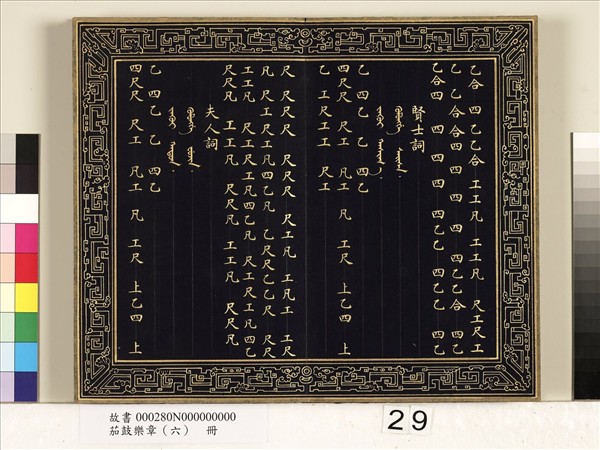 乙合 四 乙 乙合 工工凡 工工凡 尺工尺工
乙 乙 合 合四 四 四 四 四乙乙合 四乙
乙合四 四 四 四 四乙乙 四乙乙 四乙
賢士詞
乙 四乙 乙 四乙
四尺尺 尺工 凡工 凡 工尺 上乙四 上
乙 工 尺工工 尺工
尺 尺尺尺 尺尺尺 尺工凡 工凡工 工尺
凡 尺工尺工凡四乙凡 乙尺尺乙乙尺 尺尺
工工凡 尺工尺工凡四乙凡 尺工尺工凡 四乙
尺尺凡 工工凡 尺尺凡 工工凡 尺尺凡
夫人詞
乙 四乙 乙 四乙
四尺尺 尺工 凡工 凡 工尺 上乙四 上
故書 000280N000000000
茄鼓樂章（六） 冊
29